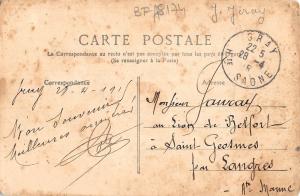 BF 8174
J. Jéray
CARTE POSTALE
La Correspondance au recto n'est pas acceptée par tous les pays étrangers
(Se renseigner à la Poste)
GRAY
22 5
28-4
SAONE
Correspondance
Gray 28-4-191
Bon Souvenir
Meilleures amitiés
Monsieur Jauvray
au Lion de Belfort
à Saint Geosmes
par Langres
Hte Marne